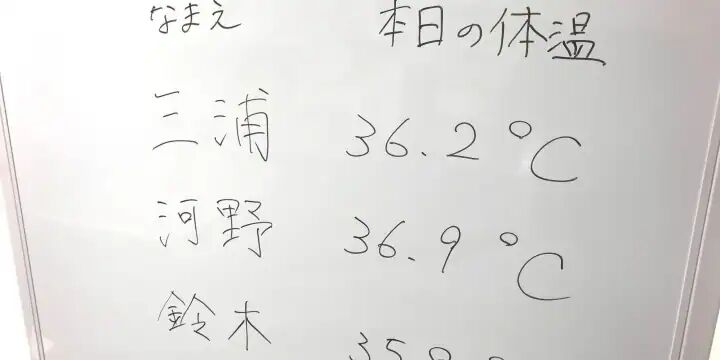 なまえ 本日の体温
三浦 36.2℃
河野 36.9℃
鈴木